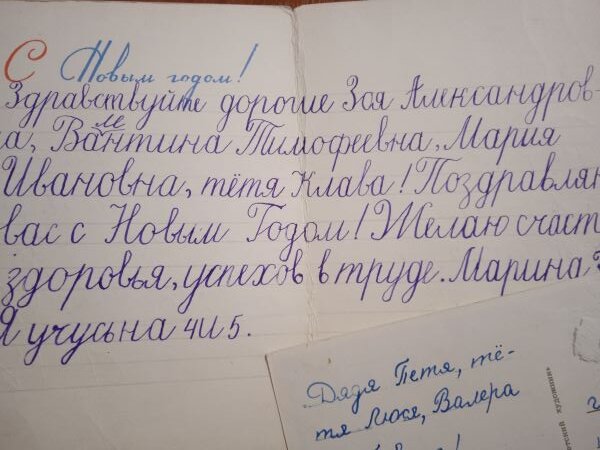 С Новым годом!
Здравствуйте дорогие Зоя Александров-
на, Валентина Тимофеевна, Мария
Ивановна, тётя Клава! Поздравляю
вас с Новым Годом! Желаю счаст
здоровья, успехов в труде. Марина
Я учусь на 4 и 5.
Дядя Петя, тё-
тя Люся, Валера